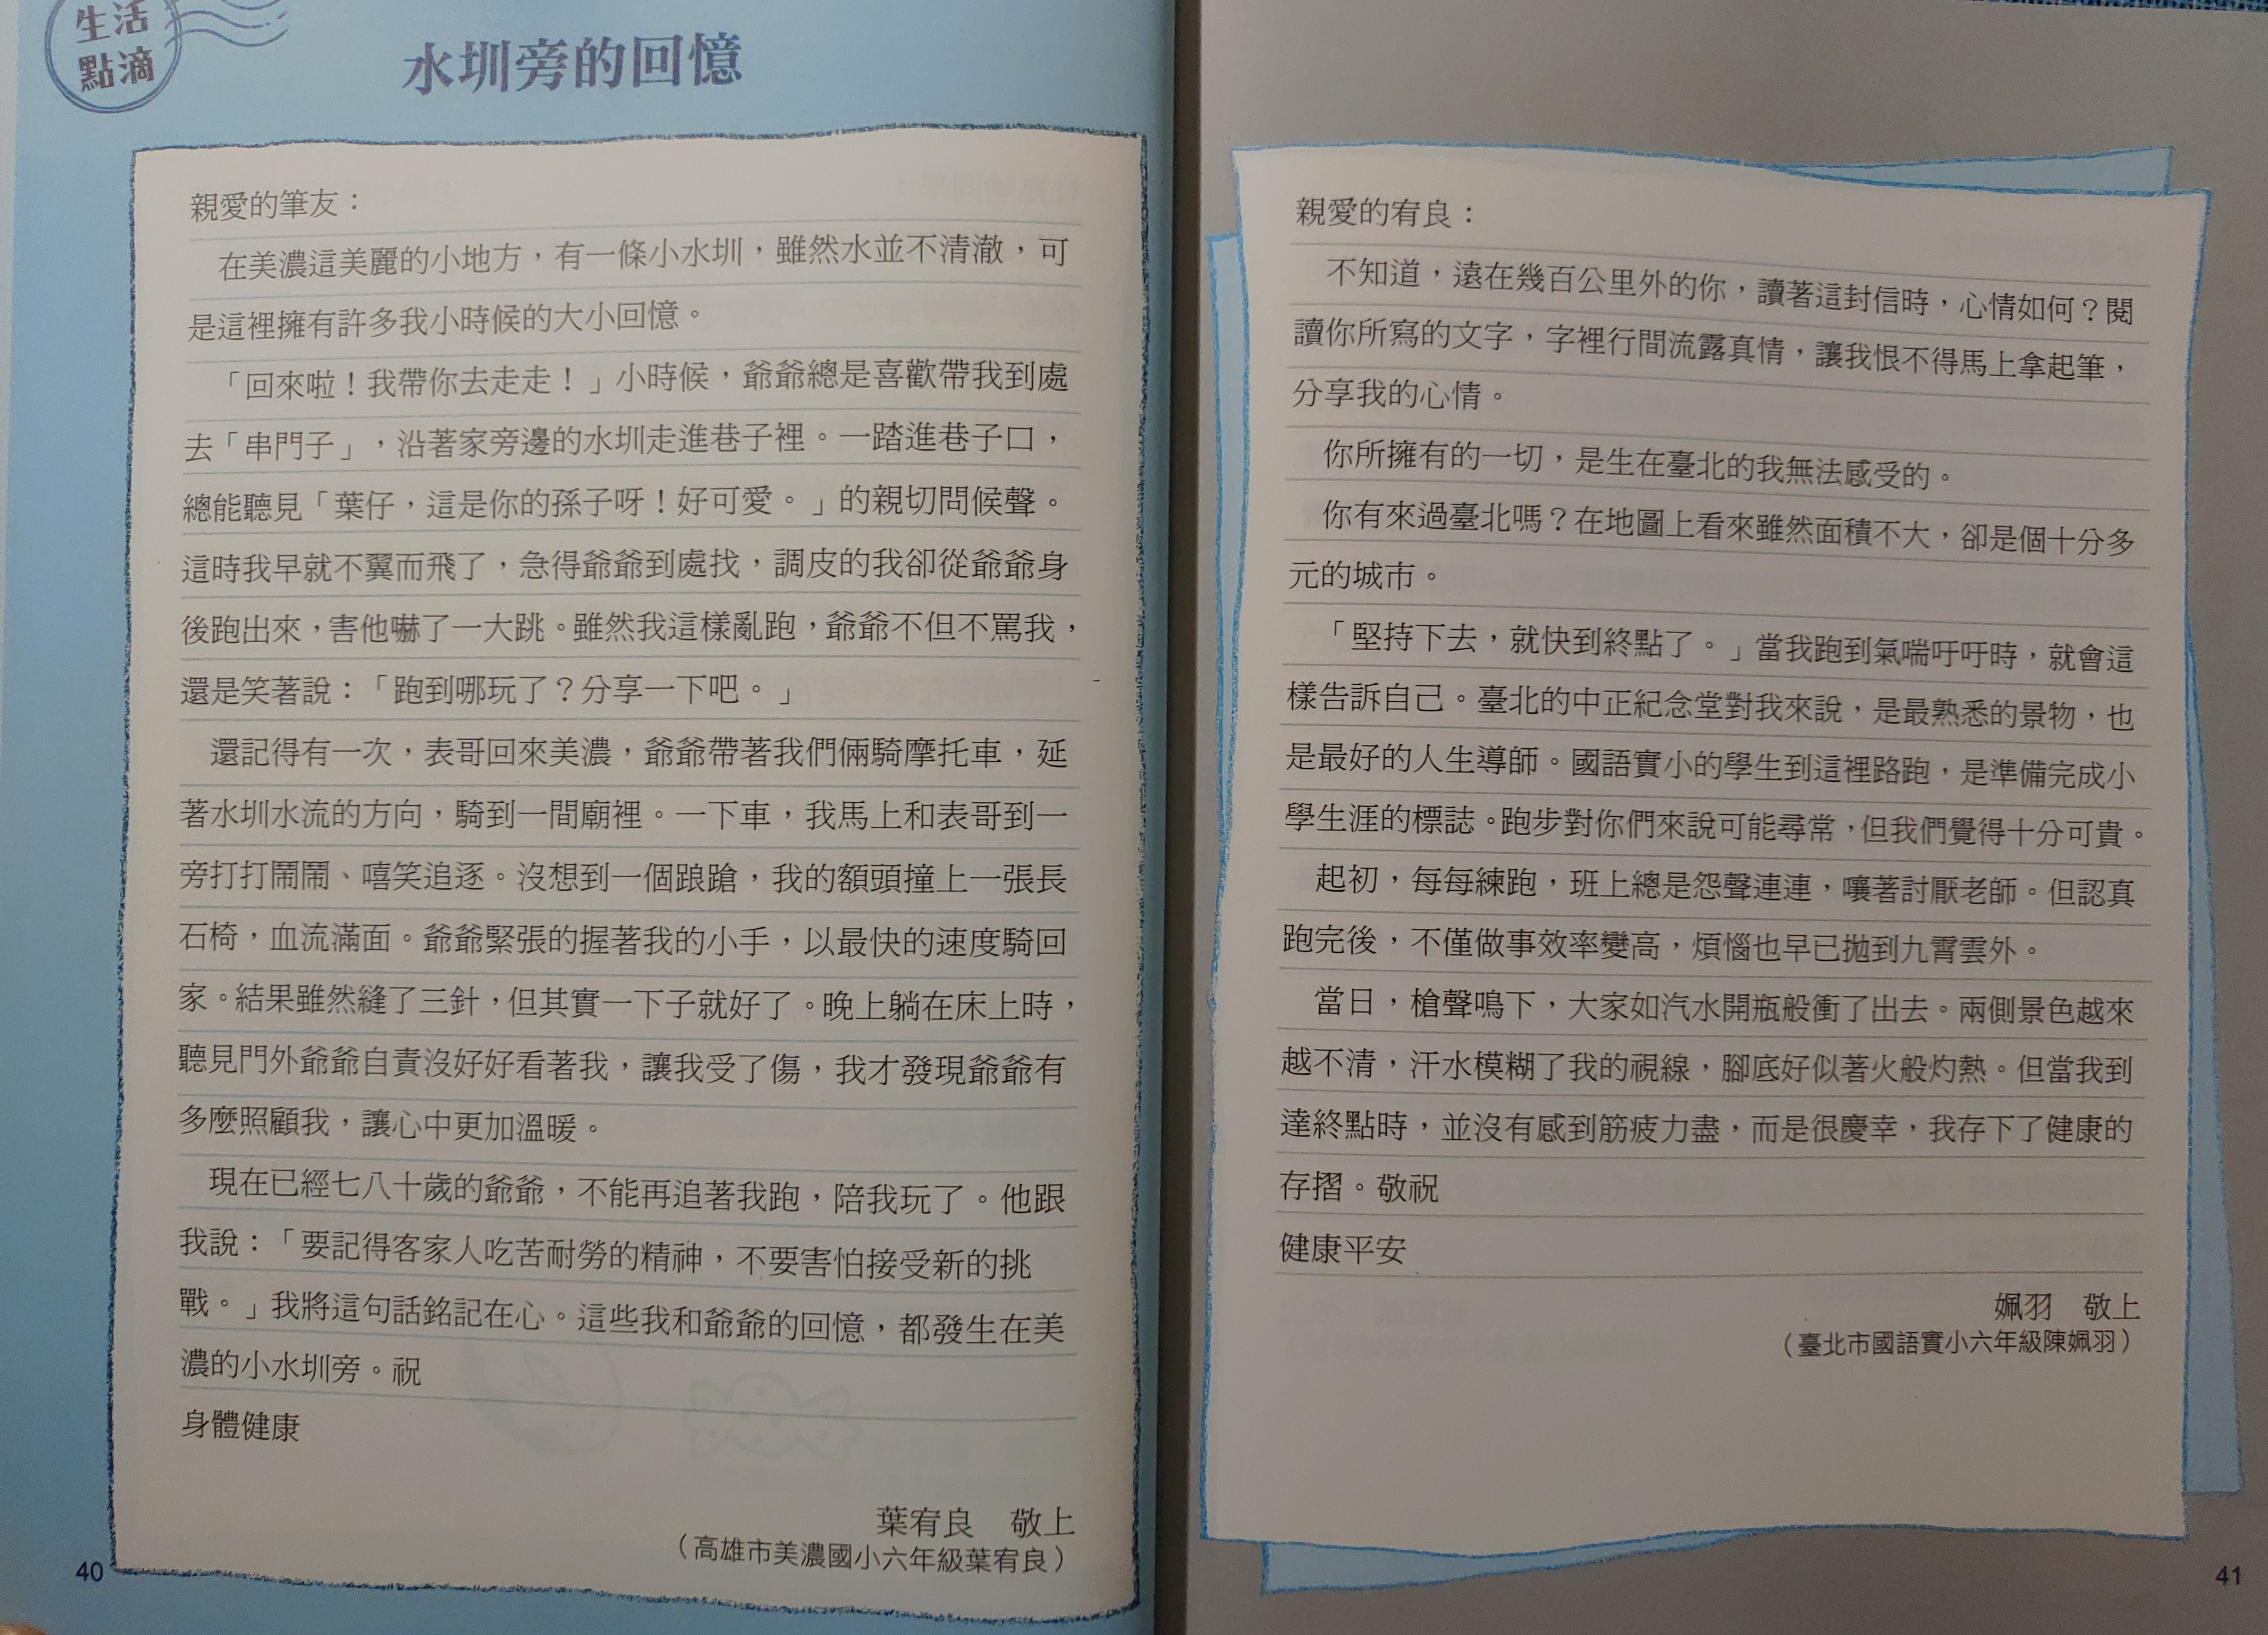 生活
點滴
水圳旁的回憶
親愛的筆友：
在美濃這美麗的小地方，有一條小水圳，雖然水並不清澈，可
是這裡擁有許多我小時候的大小回憶。
「回來啦！我帶你去走走！」小時候，爺爺總是喜歡帶我到處
去「串門子」，沿著家旁邊的水圳走進巷子裡。一踏進巷子口，
總能聽見「葉仔，這是你的孫子呀！好可愛。」的親切問候聲。
這時我早就不翼而飛了，急得爺爺到處找，調皮的我卻從爺爺身
後跑出來，害他嚇了一大跳。雖然我這樣亂跑，爺爺不但不罵我，
還是笑著說：「跑到哪玩了？分享一下吧。」
還記得有一次，表哥回來美濃，爺爺帶著我們倆騎摩托車，延
著水圳水流的方向，騎到一間廟裡。一下車，我馬上和表哥到一
旁打打鬧鬧、嘻笑追逐。沒想到一個踉蹌，我的額頭撞上一張長
石椅，血流滿面。爺爺緊張的握著我的小手，以最快的速度騎回
家。結果雖然縫了三針，但其實一下子就好了。晚上躺在床上時，
聽見門外爺爺自責沒好好看著我，讓我受了傷，我才發現爺爺有
多麼照顧我，讓心中更加溫暖。
現在已經七八十歲的爺爺，不能再追著我跑，陪我玩了。他跟
我說：「要記得客家人吃苦耐勞的精神，不要害怕接受新的挑
戰。」我將這句話銘記在心。這些我和爺爺的回憶，都發生在美
濃的小水圳旁。祝
身體健康
葉宥良　敬上
（高雄市美濃國小六年級葉宥良）
40
親愛的宥良：
不知道，遠在幾百公里外的你，讀著這封信時，心情如何？閱
讀你所寫的文字，字裡行間流露真情，讓我恨不得馬上拿起筆，
分享我的心情。
你所擁有的一切，是生在臺北的我無法感受的。
你有來過臺北嗎？在地圖上看來雖然面積不大，卻是個十分多
元的城市。
「堅持下去，就快到終點了。」當我跑到氣喘吁吁時，就會這
樣告訴自己。臺北的中正紀念堂對我來說，是最熟悉的景物，也
是最好的人生導師。國語實小的學生到這裡路跑，是準備完成小
學生涯的標誌。跑步對你們來說可能尋常，但我們覺得十分可貴。
起初，每每練跑，班上總是怨聲連連，嚷著討厭老師。但認真
跑完後，不僅做事效率變高，煩惱也早已拋到九霄雲外。
當日，槍聲鳴下，大家如汽水開瓶般衝了出去。兩側景色越來
越不清，汗水模糊了我的視線，腳底好似著火般灼熱。但當我到
達終點時，並沒有感到筋疲力盡，而是很慶幸，我存下了健康的
存摺。敬祝
健康平安
姵羽　敬上
（臺北市國語實小六年級陳姵羽）
41